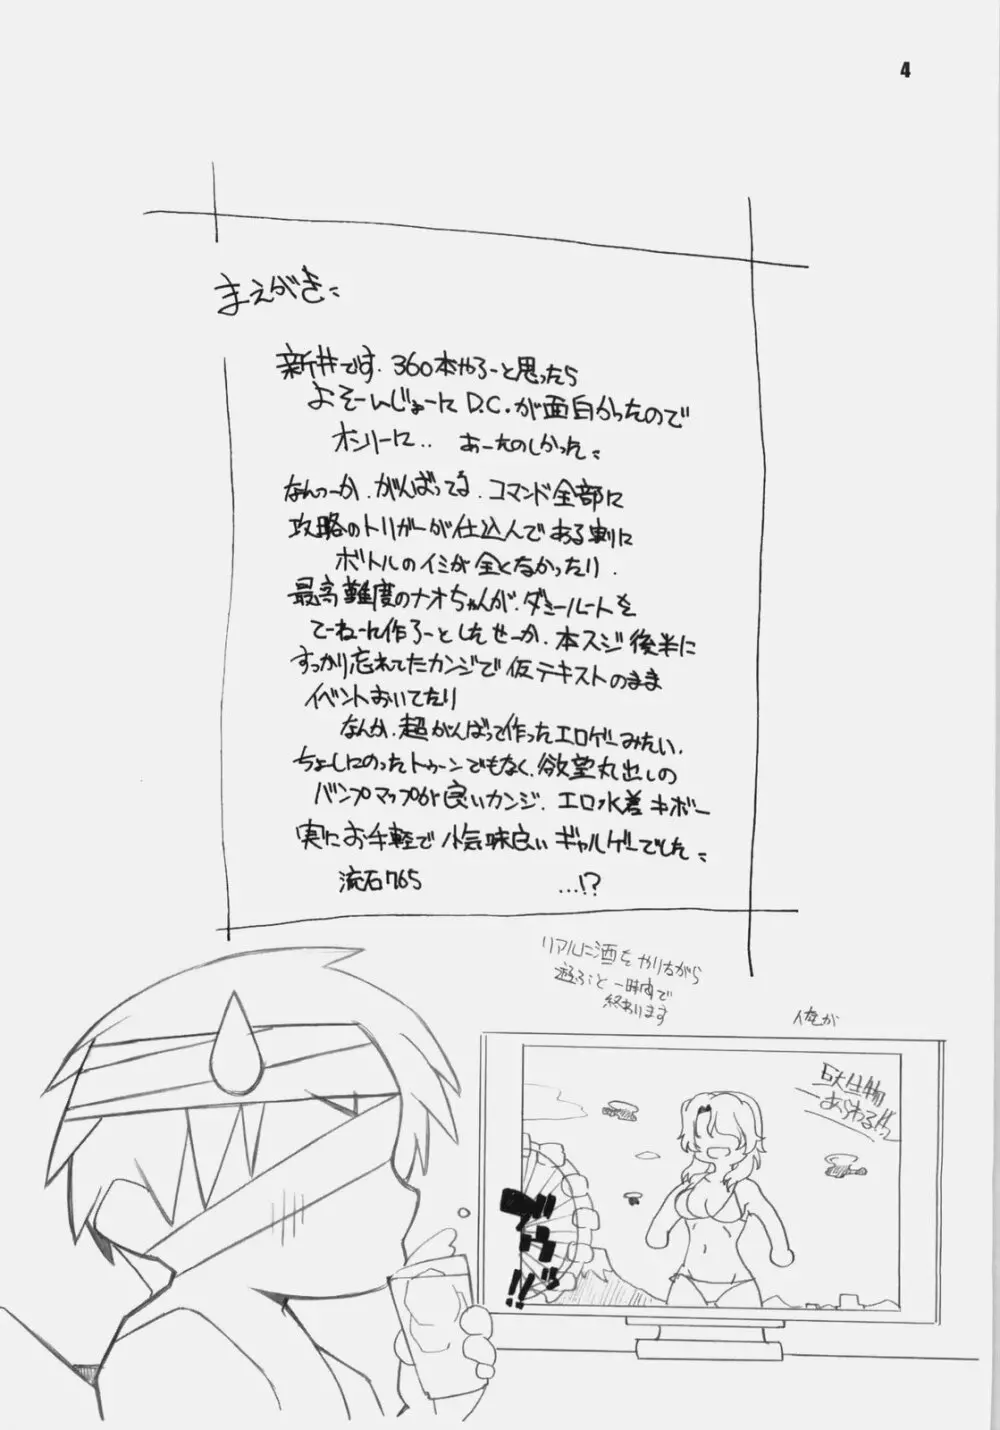 4
まえがき:
新井です. 360本やろーと思ったら
よそーんじょーに D.C.が面白かったので
オンリーに.. あーたのしかった:
なんつーか.がんばってる.コマンド全部に
攻略のトリガーが仕込んである割に
ボトルのイミが全くなかったり.
最高難度のナオちゃんが.ダミールートを
てーねーに作ろーとしたせーか.本スジ後半に
すっかり忘れてたカンジで仮テキストのまま
イベントおいてたり
なんか.超がんばって作ったエロゲーみたい.
ちょーしにのったトゥーンでもなく.欲望丸出しの
バンプマップが良いカンジ.エロ水着キボー
実にお手軽で小気味良いギャルゲーでした:
流石765 ...!?
リアルに酒をやりながら
遊ぶと一時間で
終わります
俺が
巨大
あらわる!!